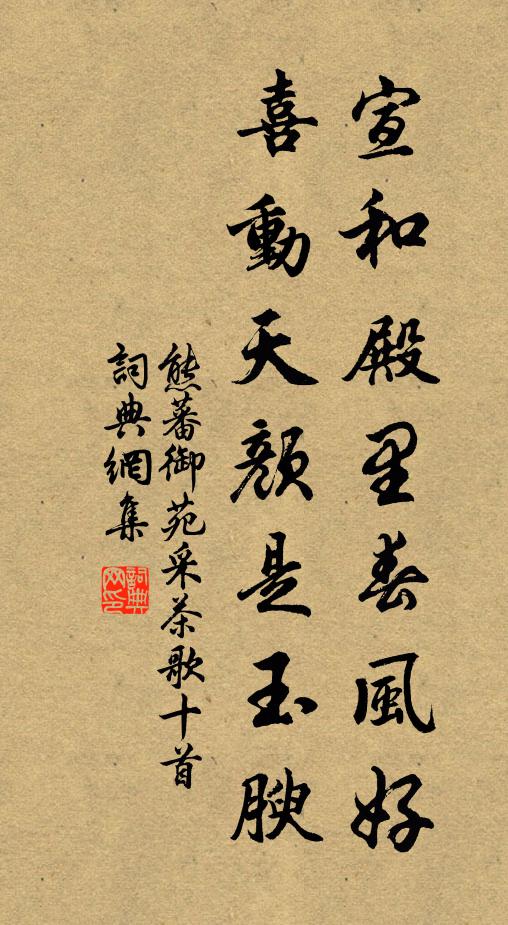 宣和殿里春風好
喜動天顏是玉腴
熊蕃御苑采茶歌十首
詞典網集
詞典网印